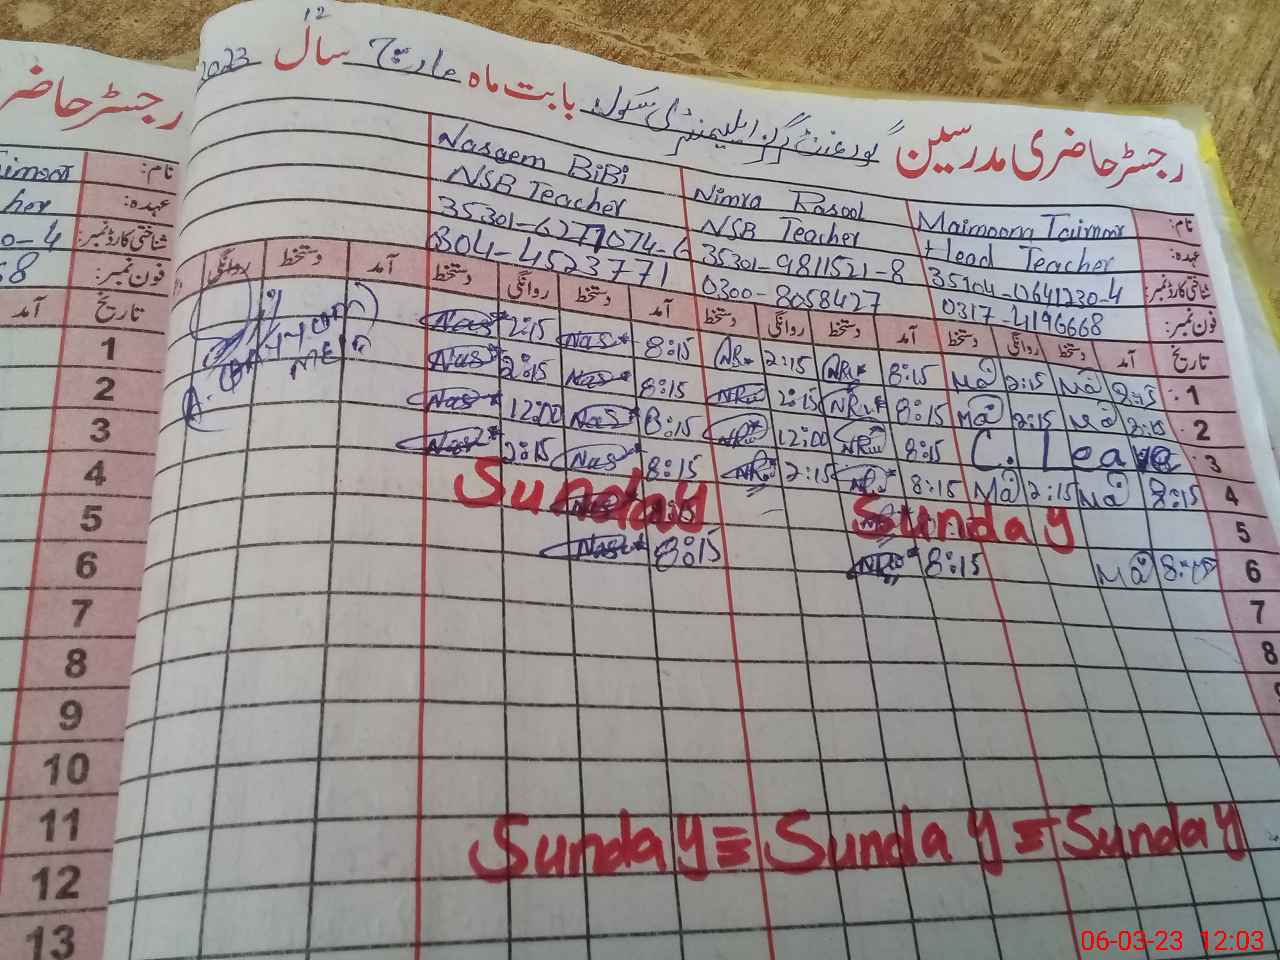 رجسٹر حاضری مدرسین گورنمنٹ گرلز ایلیمنٹری سکول بابت ماہ مارچ سال 2023
12
رجسٹر حاضر
نام: Maimoona Taimoor Nimra Rasool Naseem BiBi
عہدہ: Head Teacher NSB Teacher NSB Teacher
شناختی کارڈ نمبر: 35301-9811521-8
فون نمبر: 0317-4196668 0300-8058427 304-4523771
تاریخ آمد دستخط روانگی دستخط آمد دستخط روانگی دستخط آمد دستخط روانگی دستخط آمد دستخط روانگی
1 Ma 2:15 Ma 8:15 NRu 2:15 8:15 Nas 2:15 Nas
2 Ma 2:15 Ma 8:15 NRu 2:15 NRu 8:15 Nas 2:15 Nas
3 C. Leave 8:15 NRu 12:00 NRu 8:15 Nas 12:00 Nas
4 8:15 Ma 2:15 Ma 8:15 2:15 8:15 Nas 2:15 Nas
5 Sunday Sunday
6 8:15 Ma 8:15 8:15 Nas
7
8
Sunday = Sunday = Sunday
نام:
عہدہ: her
شناختی کارڈ نمبر: 0-4
فون نمبر: 8
تاریخ آمد
1
2
3
4
5
6
7
8
9
10
11
12
13
06-03-23 12:03